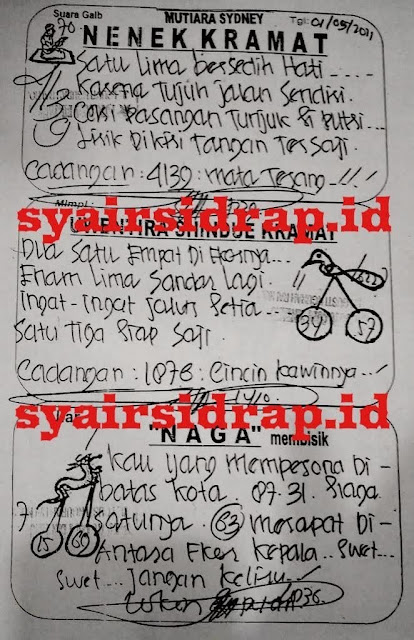 Suara Gaib
MUTIARA SYDNEY
Tgl: 01/05/2021
NENEK KRAMAT
Satu Lima bersedih Hati
Karena Tujuh jalan Sendiri.
Cari Pasangan Tunjuk & Putri...
Lirik Dikiri Tangan Tersaji.
Cadangan: 4139: Mata Terang
Mimpi:
syairsidrap.id
KRAMAT
Dua Satu Empat Di Ekornya...
Enam Lima Sandar Lagi.
Ingat-Ingat Jalur Setia...
Satu Tiga Siap Saji.
34 57
Cadangan: 1878: Cincin kawinnya..
1410.
syairsidrap.id
"NAGA" membisik
kau yang mempesona Di-
batas kota. 87.31. Siaga
Satunya. 63 merapat Di-
Antara Ekor kepala.. swet...
7
15 69
swet... jangan keliru